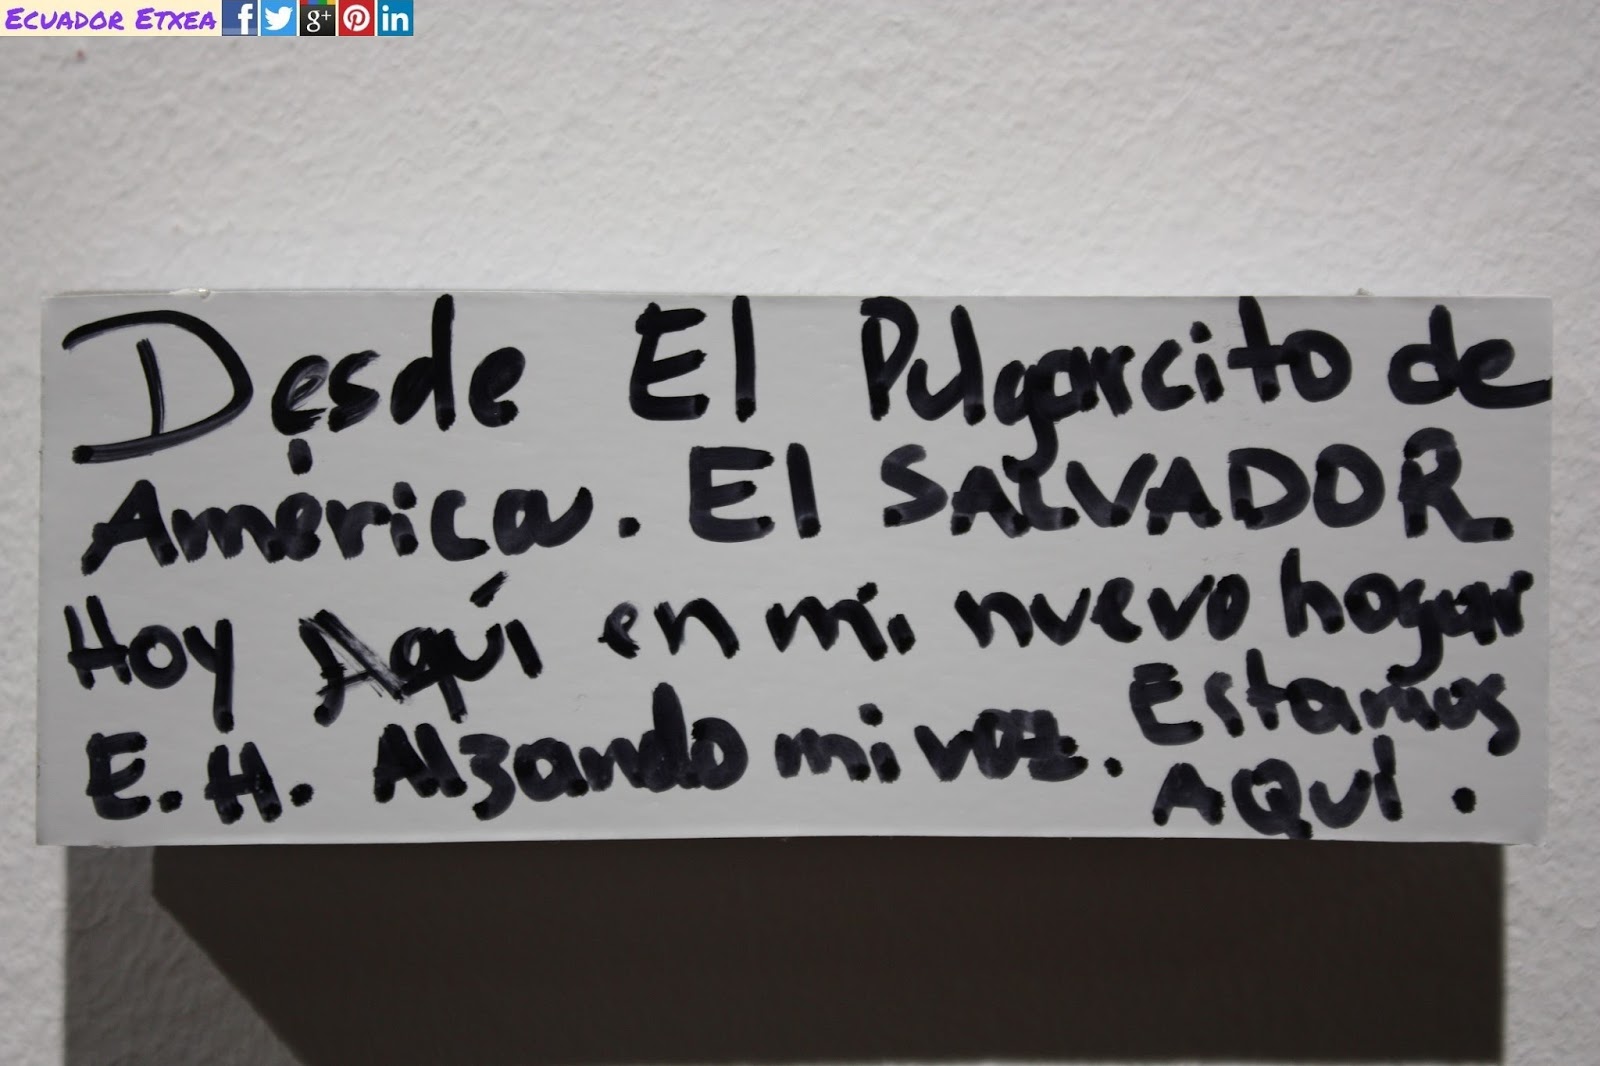 ECUADOR ETXEA
Desde El Pulgarcito de
América. El SALVADOR
Hoy Aquí en mi nuevo hogar
E.H. Alzando mi voz. Estamos
AQUÍ.